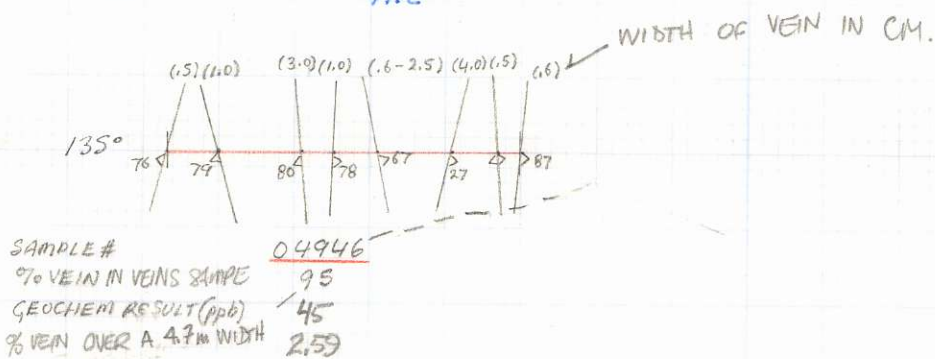 WIDTH OF VEIN IN CM.
(.5) (1.0) (3.0) (1.0) (.6-2.5) (4.0) (.5) (.6)
135°
76 79 80 78 67 27 87
SAMPLE # 04946
% VEIN IN VEINS SAMPE 95
GEOCHEM RESULT (ppb) 45
% VEIN OVER A 4.7m WIDTH 2.59